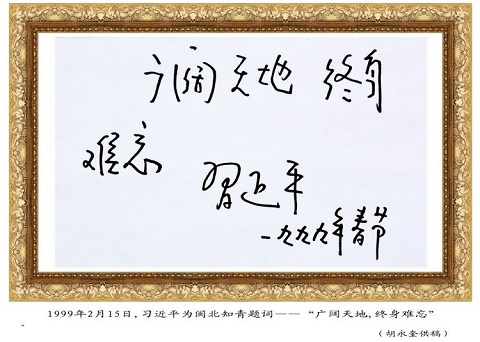 广阔天地 终身
难忘
习近平
一九九九年春节
1999年2月15日,习近平为闽北知青题词——“广阔天地,终身难忘”
(胡永奎供稿)